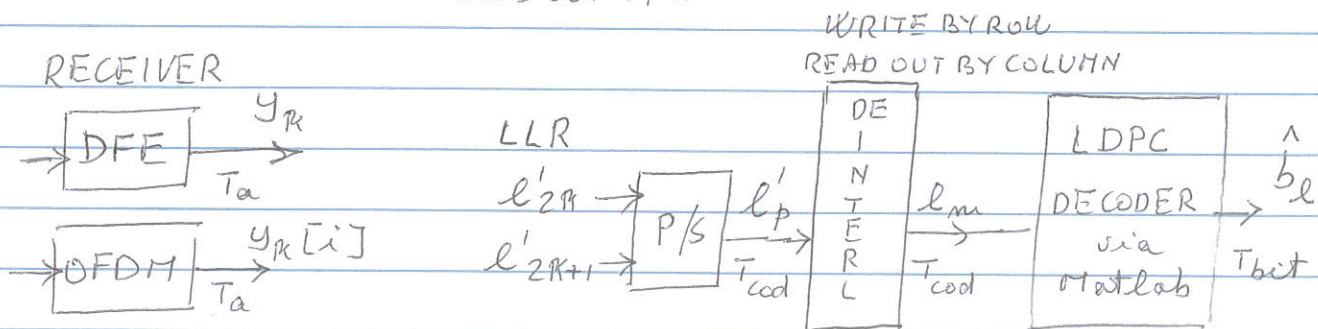 WRITE BY ROW
READ OUT BY COLUMN
RECEIVER
DFE
y_k
T_a
OFDM
y_k[i]
T_a
LLR
l'_2k
l'_2k+1
P/S
l'_p
T_cod
DEINTERL
l_m
T_cod
LDPC
DECODER
via
Matlab
b̂_l
T_bit